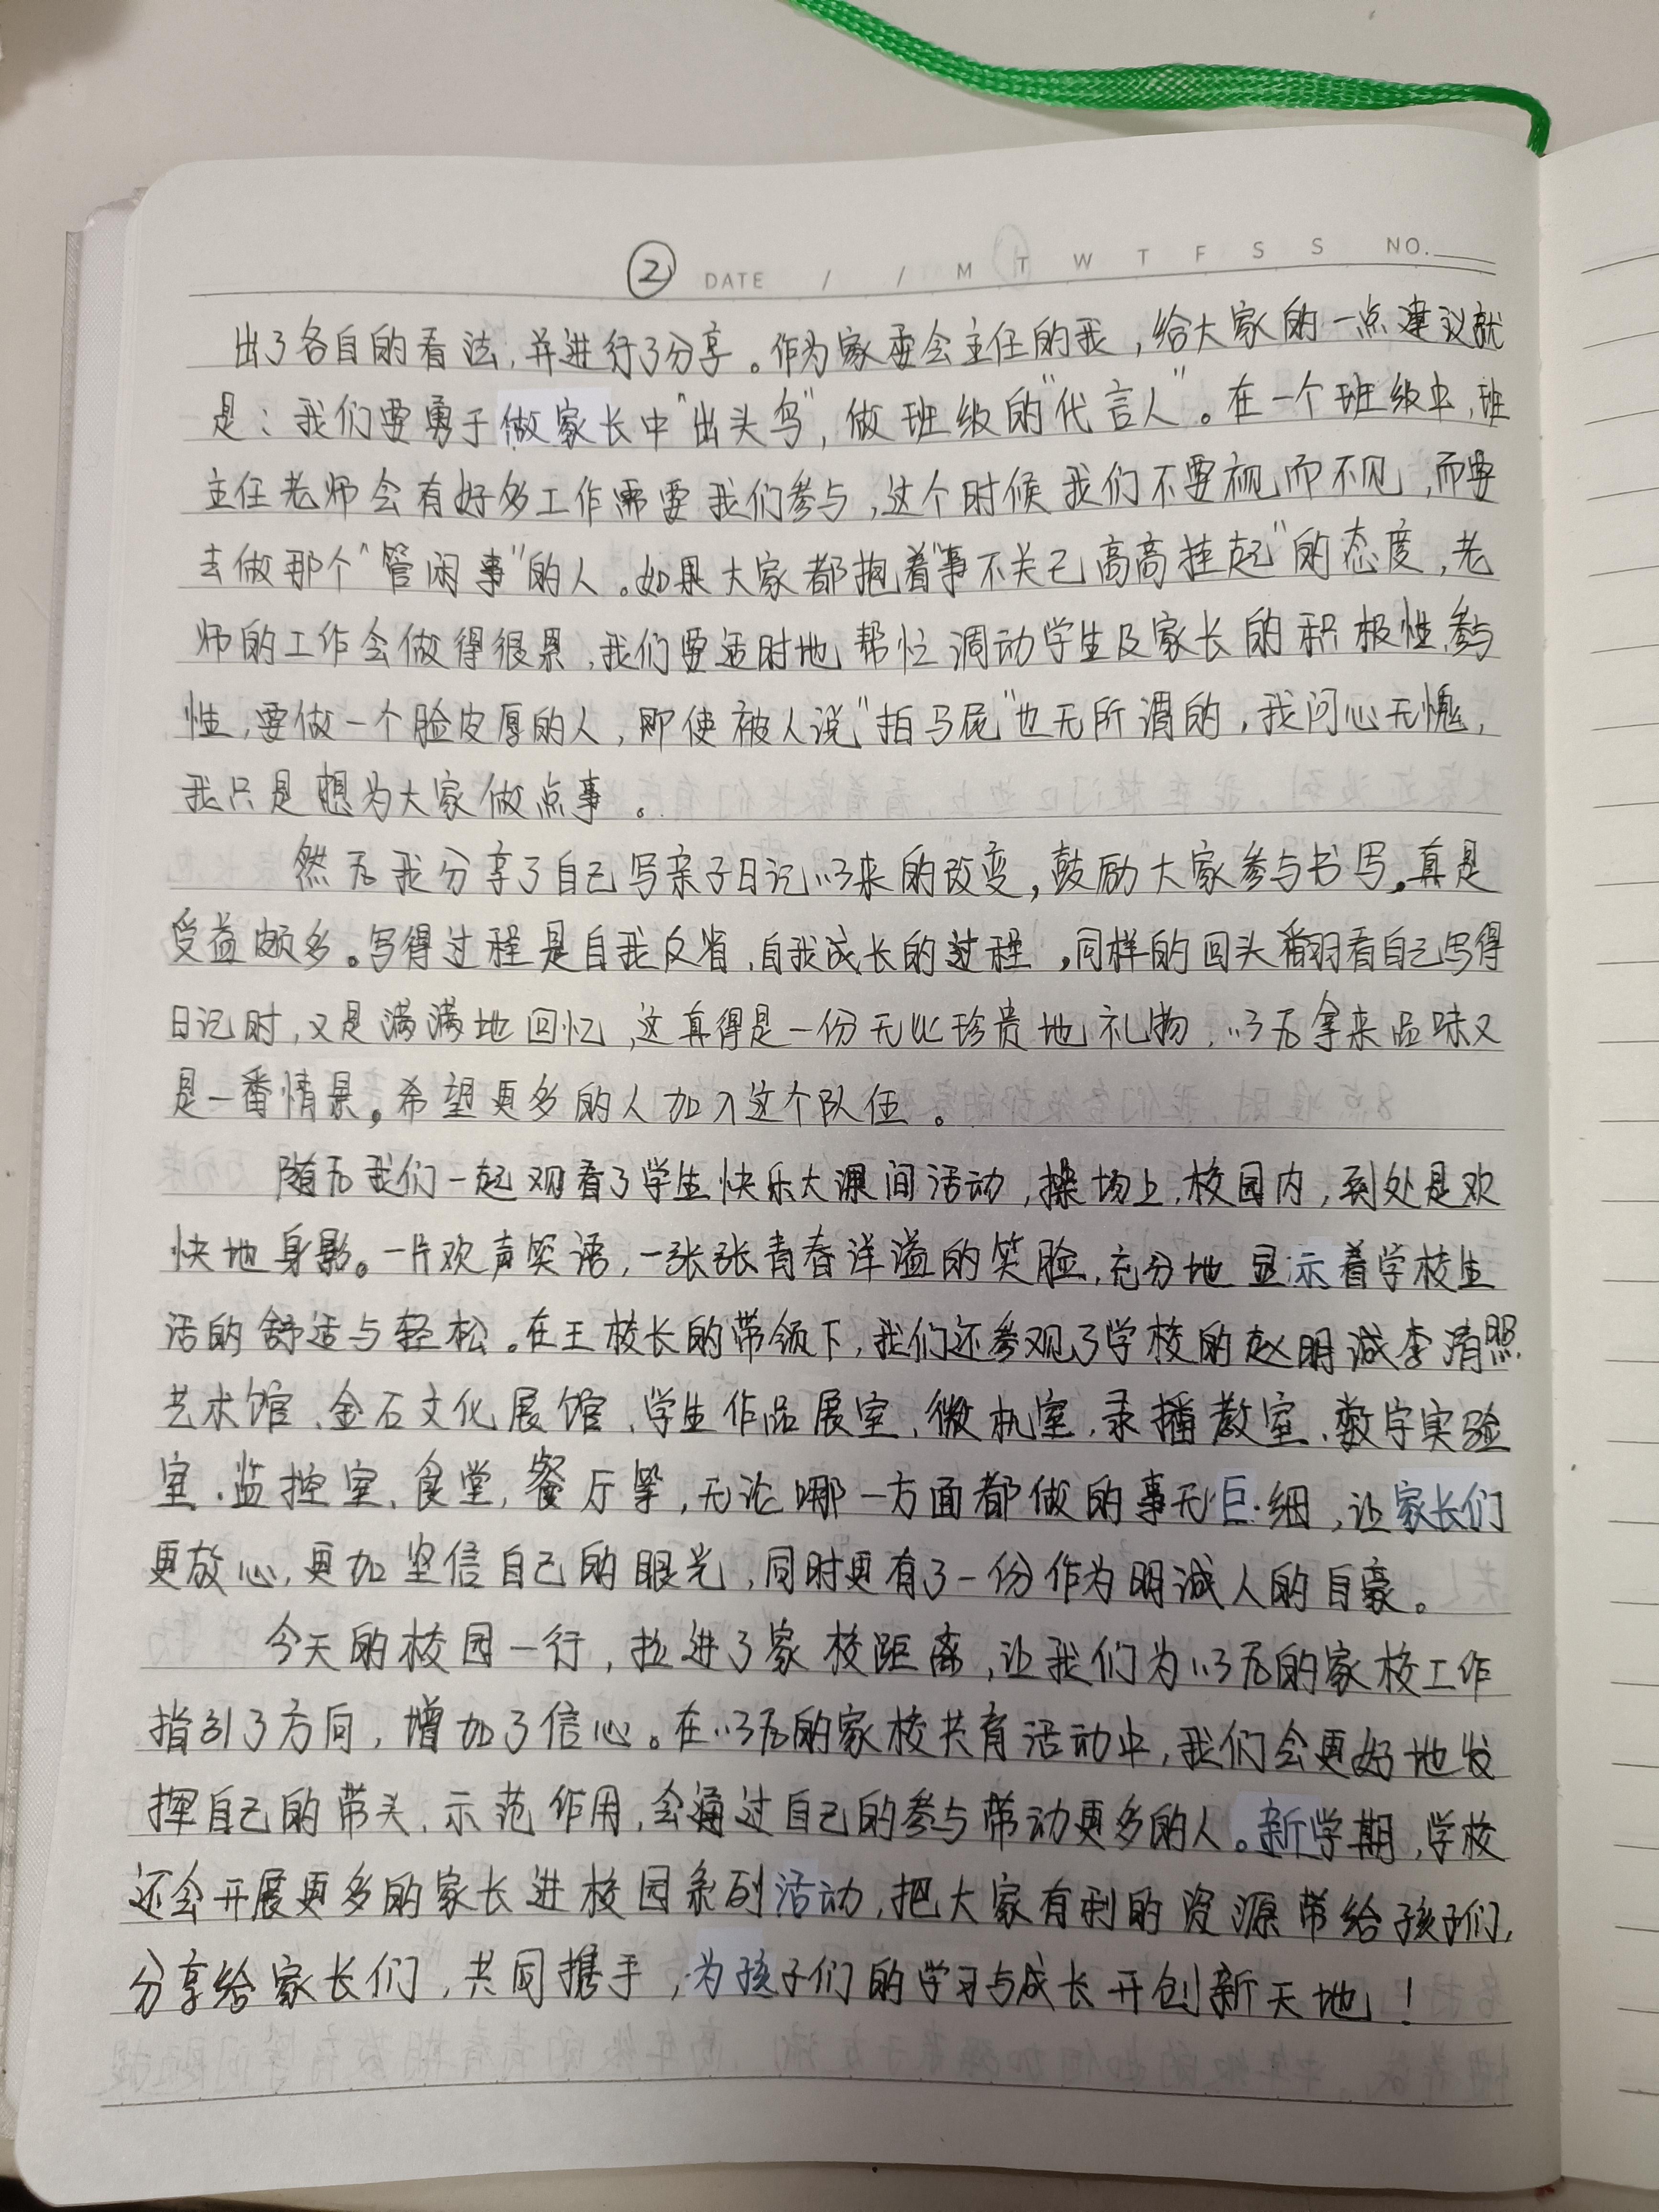 ② DATE / / M T W T F S S NO.
出了各自的看法,并进行了分享。作为家委会主任的我,给大家的一点建议就
是:我们要勇于做家长中"出头鸟",做班级的"代言人"。在一个班级中,班
主任老师会有好多工作需要我们参与,这个时候我们不要视而不见,而要
去做那个"管闲事"的人。如果大家都抱着"事不关己高高挂起"的态度,老
师的工作会做得很累,我们要适时地帮忙调动学生及家长的积极性、参与
性,要做一个脸皮厚的人,即使被人说"拍马屁"也无所谓的,我问心无愧,
我只是想为大家做点事。
然后我分享了自己写亲子日记以来的改变,鼓励大家参与书写。真是
受益颇多。写得过程是自我反省,自我成长的过程,同样的回头翻看自己写得
日记时,又是满满地回忆,这真得是一份无比珍贵地礼物,以后拿来品味又
是一番情景。希望更多的人加入这个队伍。
随后我们一起观看了学生快乐大课间活动,操场上,校园内,到处是欢
快地身影。一片欢声笑语,一张张青春洋溢的笑脸,充分地显示着学校生
活的舒适与轻松。在王校长的带领下,我们还参观了学校的赵明诚李清照
艺术馆、金石文化展馆、学生作品展室、微机室、录播教室、数字实验
室、监控室、食堂,餐厅等,无论哪一方面都做的事无巨细,让家长们
更放心,更加坚信自己的眼光,同时更有了一份作为明诚人的自豪。
今天的校园一行,拉进了家校距离,让我们为以后的家校工作
指引了方向,增加了信心。在以后的家校共育活动中,我们会更好地发
挥自己的带头、示范作用,会通过自己的参与带动更多的人。新学期,学校
还会开展更多的家长进校园系列活动,把大家有利的资源带给孩子们,
分享给家长们,共同携手,为孩子们的学习与成长开创新天地!